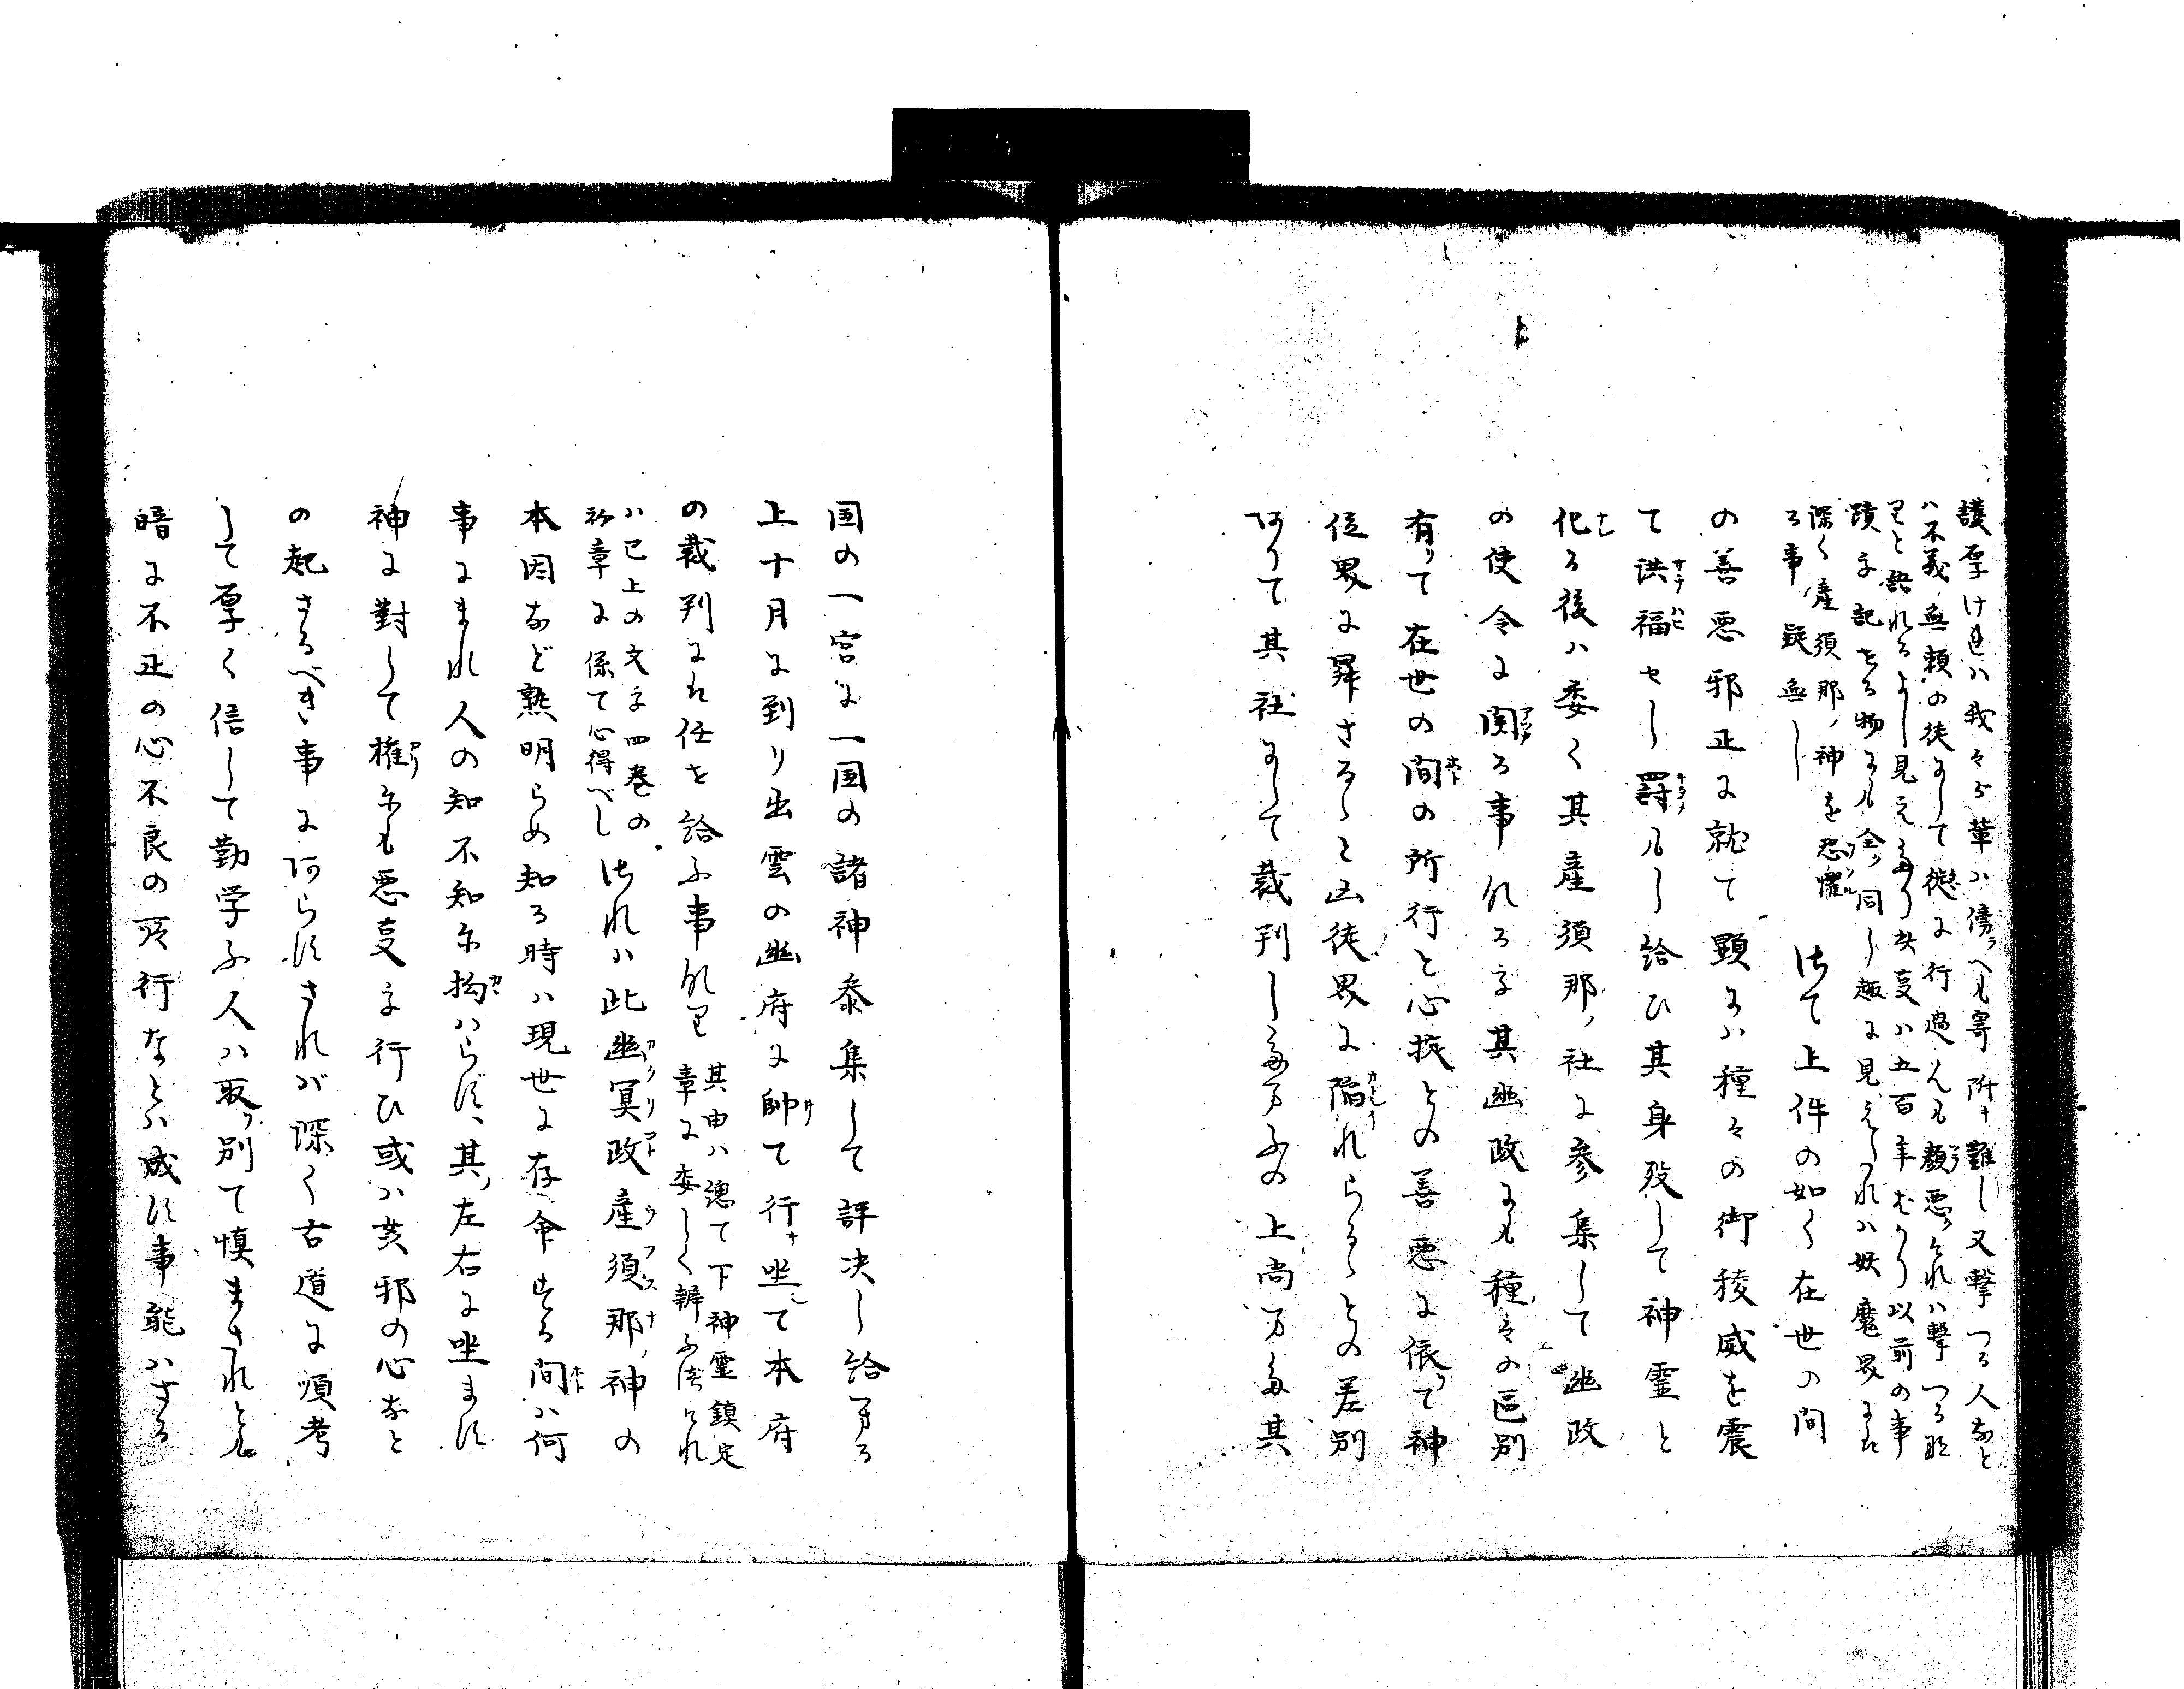 護厚けれハ我々が輩ハ傍ヘも寄附キ難し又撃つる人など
ハ不義無頼の徒にして徒に行過んも顔悪けれハ撃つる
りと語れるよし見えたり此等ハ五百年ばかり以前の事
蹟を記せる物にも全同し趣に見えたれハ妖魔界にも
深く産須那ノ神を恐懼
る事疑無し
偖て上件の如く在世の間
の善悪邪正に就て顕にハ種々の御稜威を震
て洪福せし罸ルし給ひ其身歿して神霊と
化る後ハ委く其産須那ノ社に参集して幽政
の使令に関る事なるを其幽政にも種々の区別
有りて在世の間の所行と心掟との善悪に依て神
位界に昇さるゝと凶徒界に陥れらるゝとの差別
ありて其社にして裁判したまふの上尚また其
国の一宮に一国の諸神参集して評決し給ひつる
上十月に到り出雲の幽府に帥て行キ坐て本府
の裁判にれ任せ給ふ事なり
其由ハ總て下神霊鎮定
章に委しく辨ふべけれ
ハ已上の文を四巻の
初章に係て心得べし
偖れハ此幽冥政産須那ノ神の
本因など熟明らめ知る時ハ現世に存命せる間ハ何
事にまれ人の知不知に拘ハらず其ノ左右に坐ます
神に對して権にも悪事を行ひ或ハ其邪の心など
の起さるべき事にあらずされバ深く古道に順考
して厚く信して勤学ふ人ハ取り別て慎まされとも
暗に不正の心不良の所行なとハ成す事能ハさる